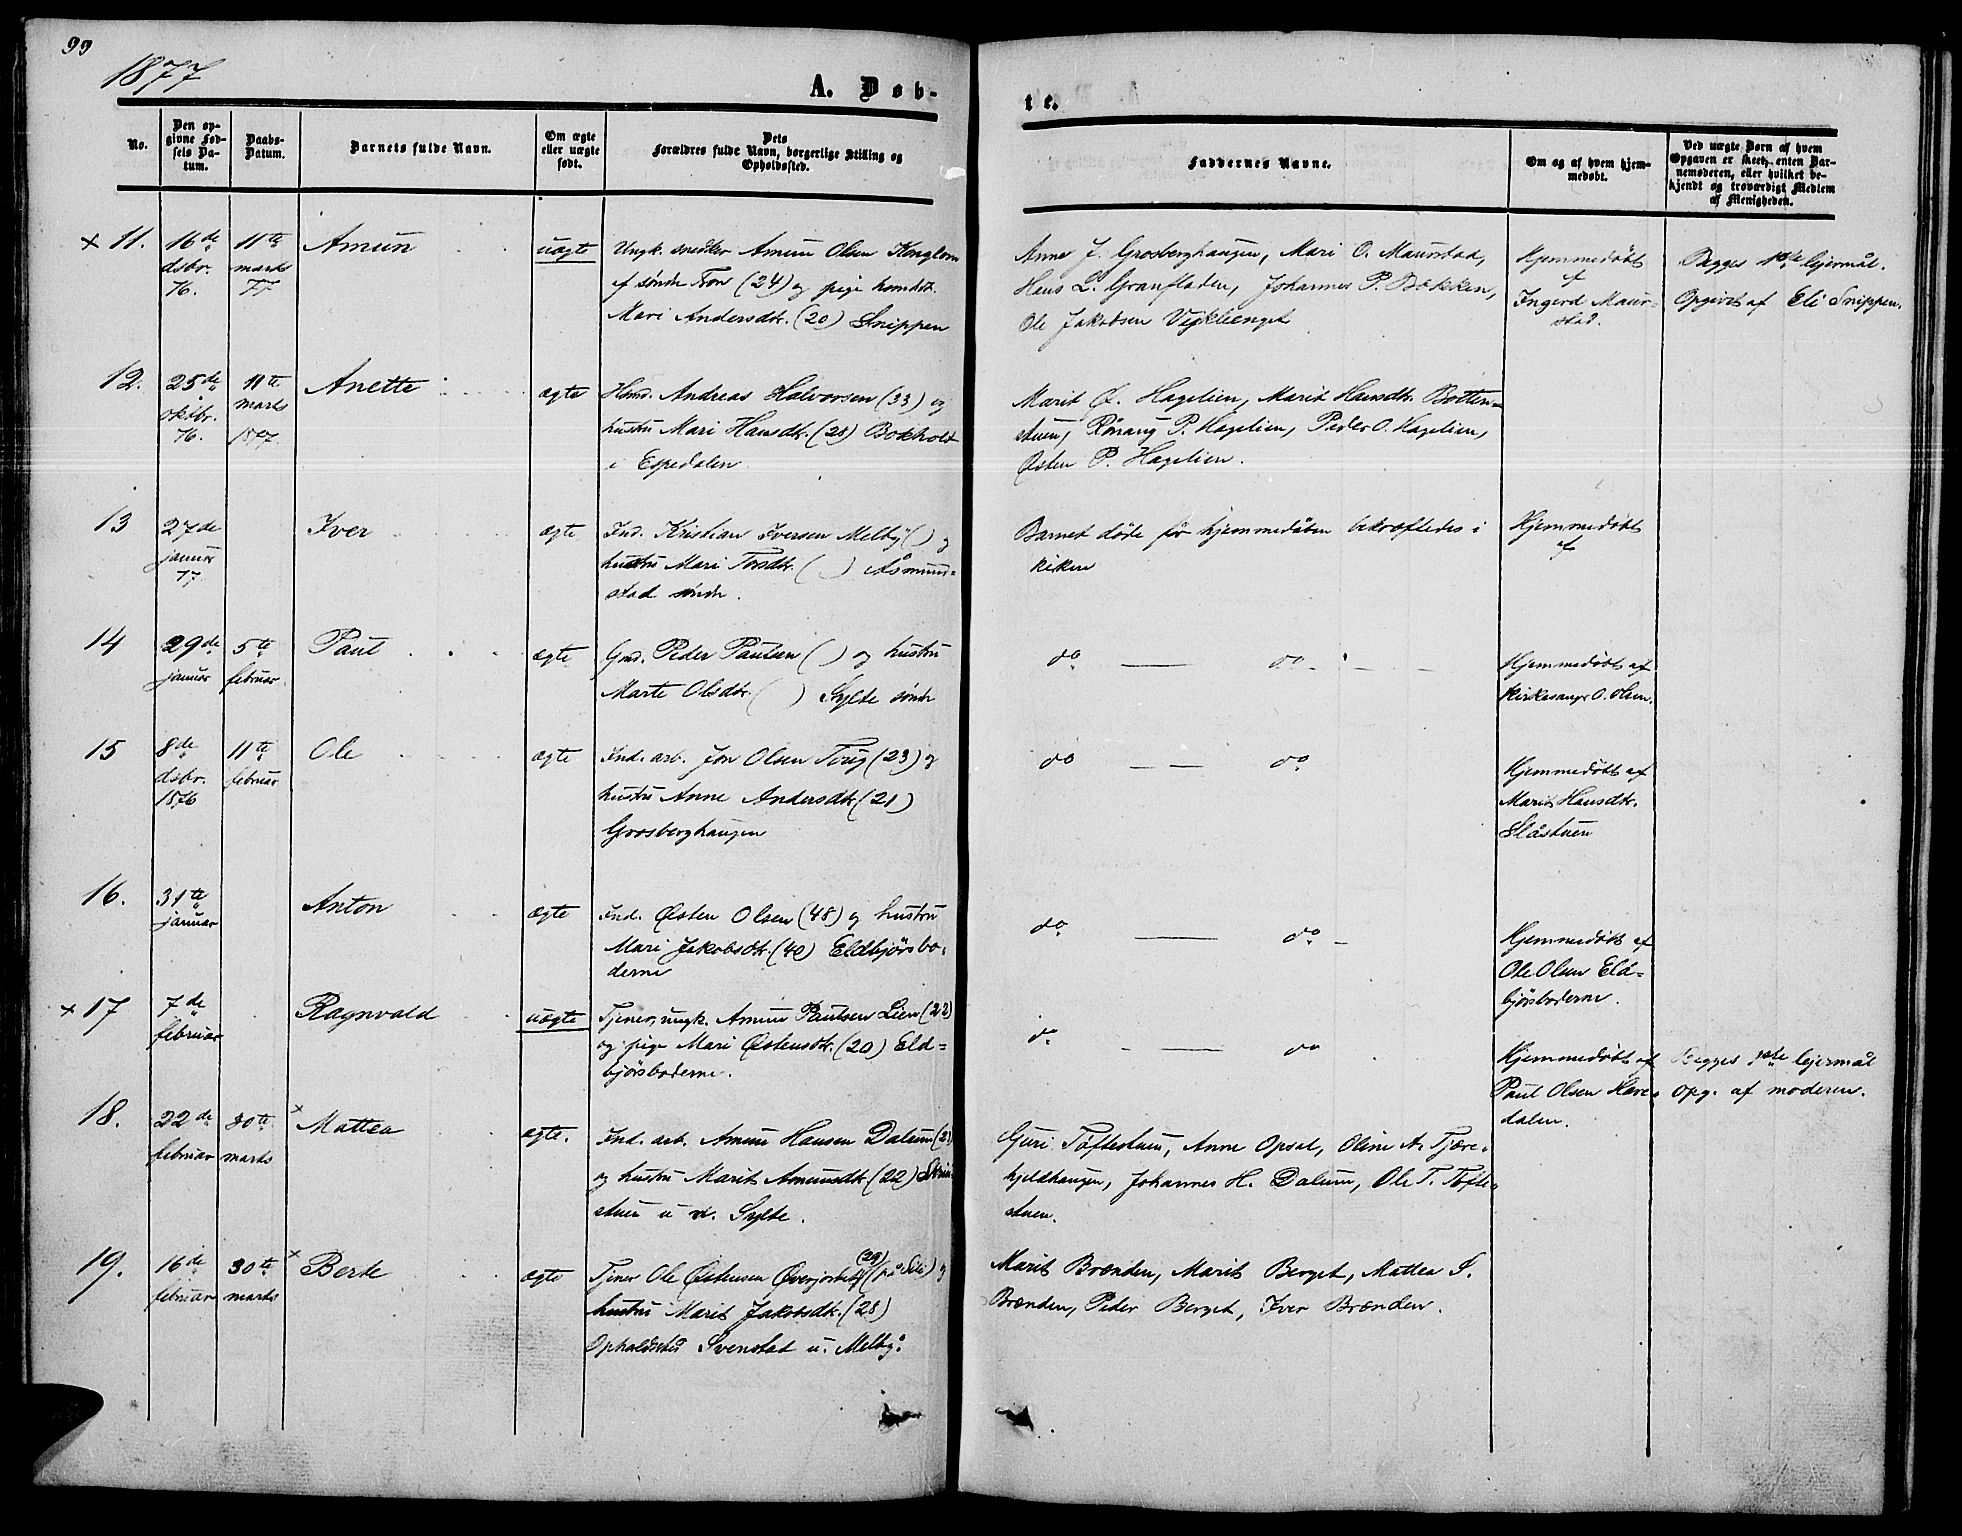 99
1877
A. Døb-
te.
No.
Den op-
givne Fød-
sels Da-
tum.
Daabs-
Datum.
Barnets fulde Navn.
Om ægte
eller uægte
født.
Dets
Forældres fulde Navn, borgerlige Stilling og
Opholdssted.
Faddernes Navne.
Om og af hvem hjem-
medøbt.
Ved uægte Børn af hvem
Opgaven er skeet, enten Bar-
nemoderen, eller hvilket be-
kjendt og troværdigt Medlem
af Menigheden.
× 11.
16de
dsbr.
76.
11te
marts
77
Amun
uægte
Ungk. snedker Amun Olsen
af søndre Fron (24) og pige
Mari Andersdtr. (20) Snippen
Anne J. Grosberghaugen, Mari O. Maurstad,
Hans L. Granfladen, Johannes P. Bakken,
Ole Jakobsen
Hjemmedøbt
af
Ingerd Maur-
stad.
Begges 1ste lejermål.
Opgivet af Eli Snippen.
12.
25de
oktbr.
76.
11te
marts
1877.
Anette
ægte
Hmd. Andreas Halvorsen (33) og
hustru Mari Hansdtr. (28) Bokholt
i Espedalen.
Marit Ø. Hagelien, Marit Hansdtr. Botten-
stuen, Rønaug P. Hagelien, Peder O. Hagelien,
Østen P. Hagelien.
13
27de
januar
77
Iver
ægte
Ind. Kristian Iversen Melby ( ) og
hustru Mari Torsdtr. ( ) Åsmund-
stad søndre.
Barnet døde før hjemmedåben bekræftedes i
kirken
Hjemmedøbt
af
14
29de
januar
5te
februar
Paul
ægte
Gmd. Peder Paulsen ( ) og hustru
Marte Olsdtr. ( ) Sylte søndre
do — do
Hjemmedøbt af
kirkesanger O. Olsen.
15
8de
dsbr.
1876
11te
februar
Ole
ægte
Ind. arb. Jon Olsen (23) og
hustru Anne Andersdtr. (21)
Grosberghaugen
do — — do
Hjemmedøbt af
Marit Hansdtr.
Slåstuen
16.
31te
januar
Anton
ægte
Ind. Østen Olsen (48) og hustru
Mari Jakobsdtr. (40) Eldbjørsbo-
derne
do — do
Hjemmedøbt af
Ole Olsen Eld-
bjørsboderne.
× 17
7de
februar
Ragnvald
uægte
Tjener, ungk. Amun Paulsen Lien (22)
og pige Mari Østensdtr. (20) Eld-
bjørsboderne.
do — do
Hjemmedøbt af
Paul Olsen
dalen.
Begges 1ste lejermål
opg. af moderen.
18.
22de
februar
30te
marts
× Mattea
ægte.
Ind. arb. Amun Hansen Dalum
og hustru Marit Amundsdtr. (22)
stuen u. Sylte.
Guri Tøftestuen, Anne Opsal, Oline A. Tjære-
hjeldhaugen, Johannes H. Dalum, Ole T. Tøfte-
stuen.
19.
16de
februar
30te
marts
× Berte
ægte
Tjener Ole Østensen (29) (på ) og
hustru Marit Jakobsdtr. (28)
Opholdssted Svenstad u. Melby.
Marit Brænden, Marit Berget, Mattea S.
Brænden, Peder Berget, Iver Brænden.